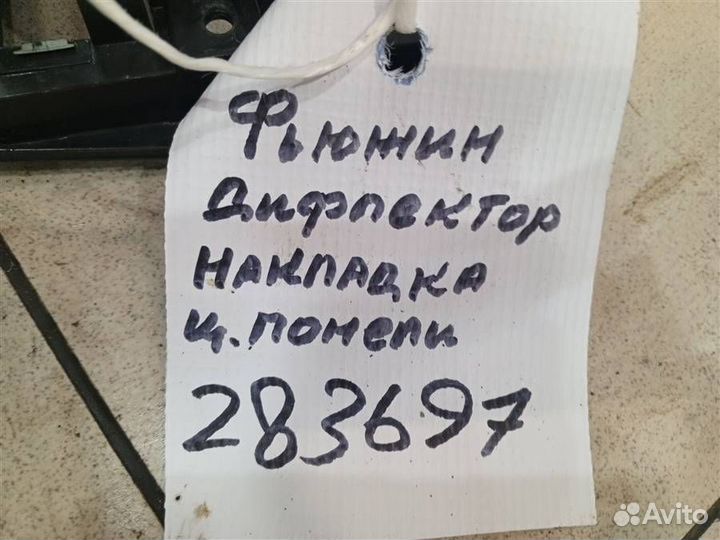 Фьюжин
Дифлектор
накладка
ц. понели
283697
Avito